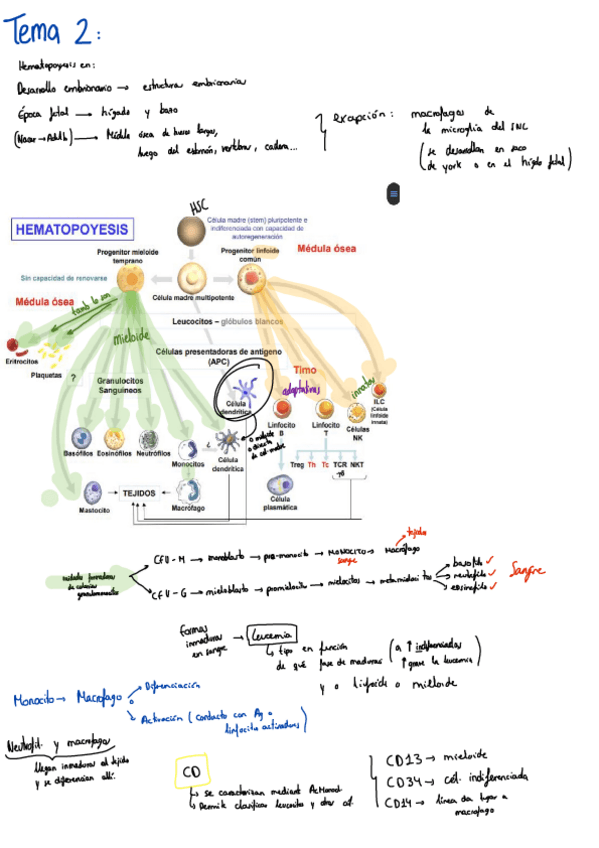 Tema 2:
Hematopoyesis en:
Desarrollo embrionario → estructuras embrionarias
Época fetal → hígado y bazo
(Nacer → Adulto) → Médula ósea de huesos largos,
luego del esternón, vertebras, cadera...
Excepción: macrofagos de
la microglía del SNC
(se desarrollan en saco
de york o en el hígado fetal)
HSC
HEMATOPOYESIS
Célula madre (stem) pluripotente e
indiferenciada con capacidad de
autoregeneración
Progenitor mieloide
temprano
Progenitor linfoide
común
Médula ósea
Sin capacidad de renovarse
Célula madre multipotente
Médula ósea
tamb lo son
Leucocitos – glóbulos blancos
mieloide
Células presentadoras de antígeno
(APC)
Eritrocitos
Plaquetas
?
Granulocitos
Sanguíneos
Timo
adaptativas
innatas
Célula
dendrítica
ILC
(Célula
linfoide
innata)
Linfocito
B
Linfocito
T
Células
NK
o mieloide
o directa
de cel. madre
Basófilos Eosinófilos Neutrófilos
Monocitos
¿
Célula
dendrítica
Treg Th Tc TCR NKT
γδ
Mastocito
TEJIDOS
Macrófago
Célula
plasmática
tejidos
CFU-M → monoblasto → pro-monocito → MONOCITO → Macrófago
sangre
unidades formadoras
de colonias
granulomonocito
CFU-G → mieloblasto → promielocito → mielocitos → metamielocitos
basofilo ✓
neutrofilo ✓
eosinofilo ✓
Sangre
Formas
inmaduras
en sangre
→ Leucemia
↳ tipo en función
de qué fase de madurac
(a ↑ indiferenciadas
↑ grave la leucemia)
y o linfoide o mieloide
Monocito → Macrófago
Diferenciación
Activación (contacto con Ag o
linfocitos activadores)
Neutrofil. y macrofagos
llegan inmaduros al tejido
y se diferencian allí.
CD
↳ se caracterizan mediant AcMonocl
↳ Permite clasificar leucocitos y otras cel.
CD13 → mieloide
CD34 → cél. indiferenciada
CD14 → línea da lugar a
macrofago